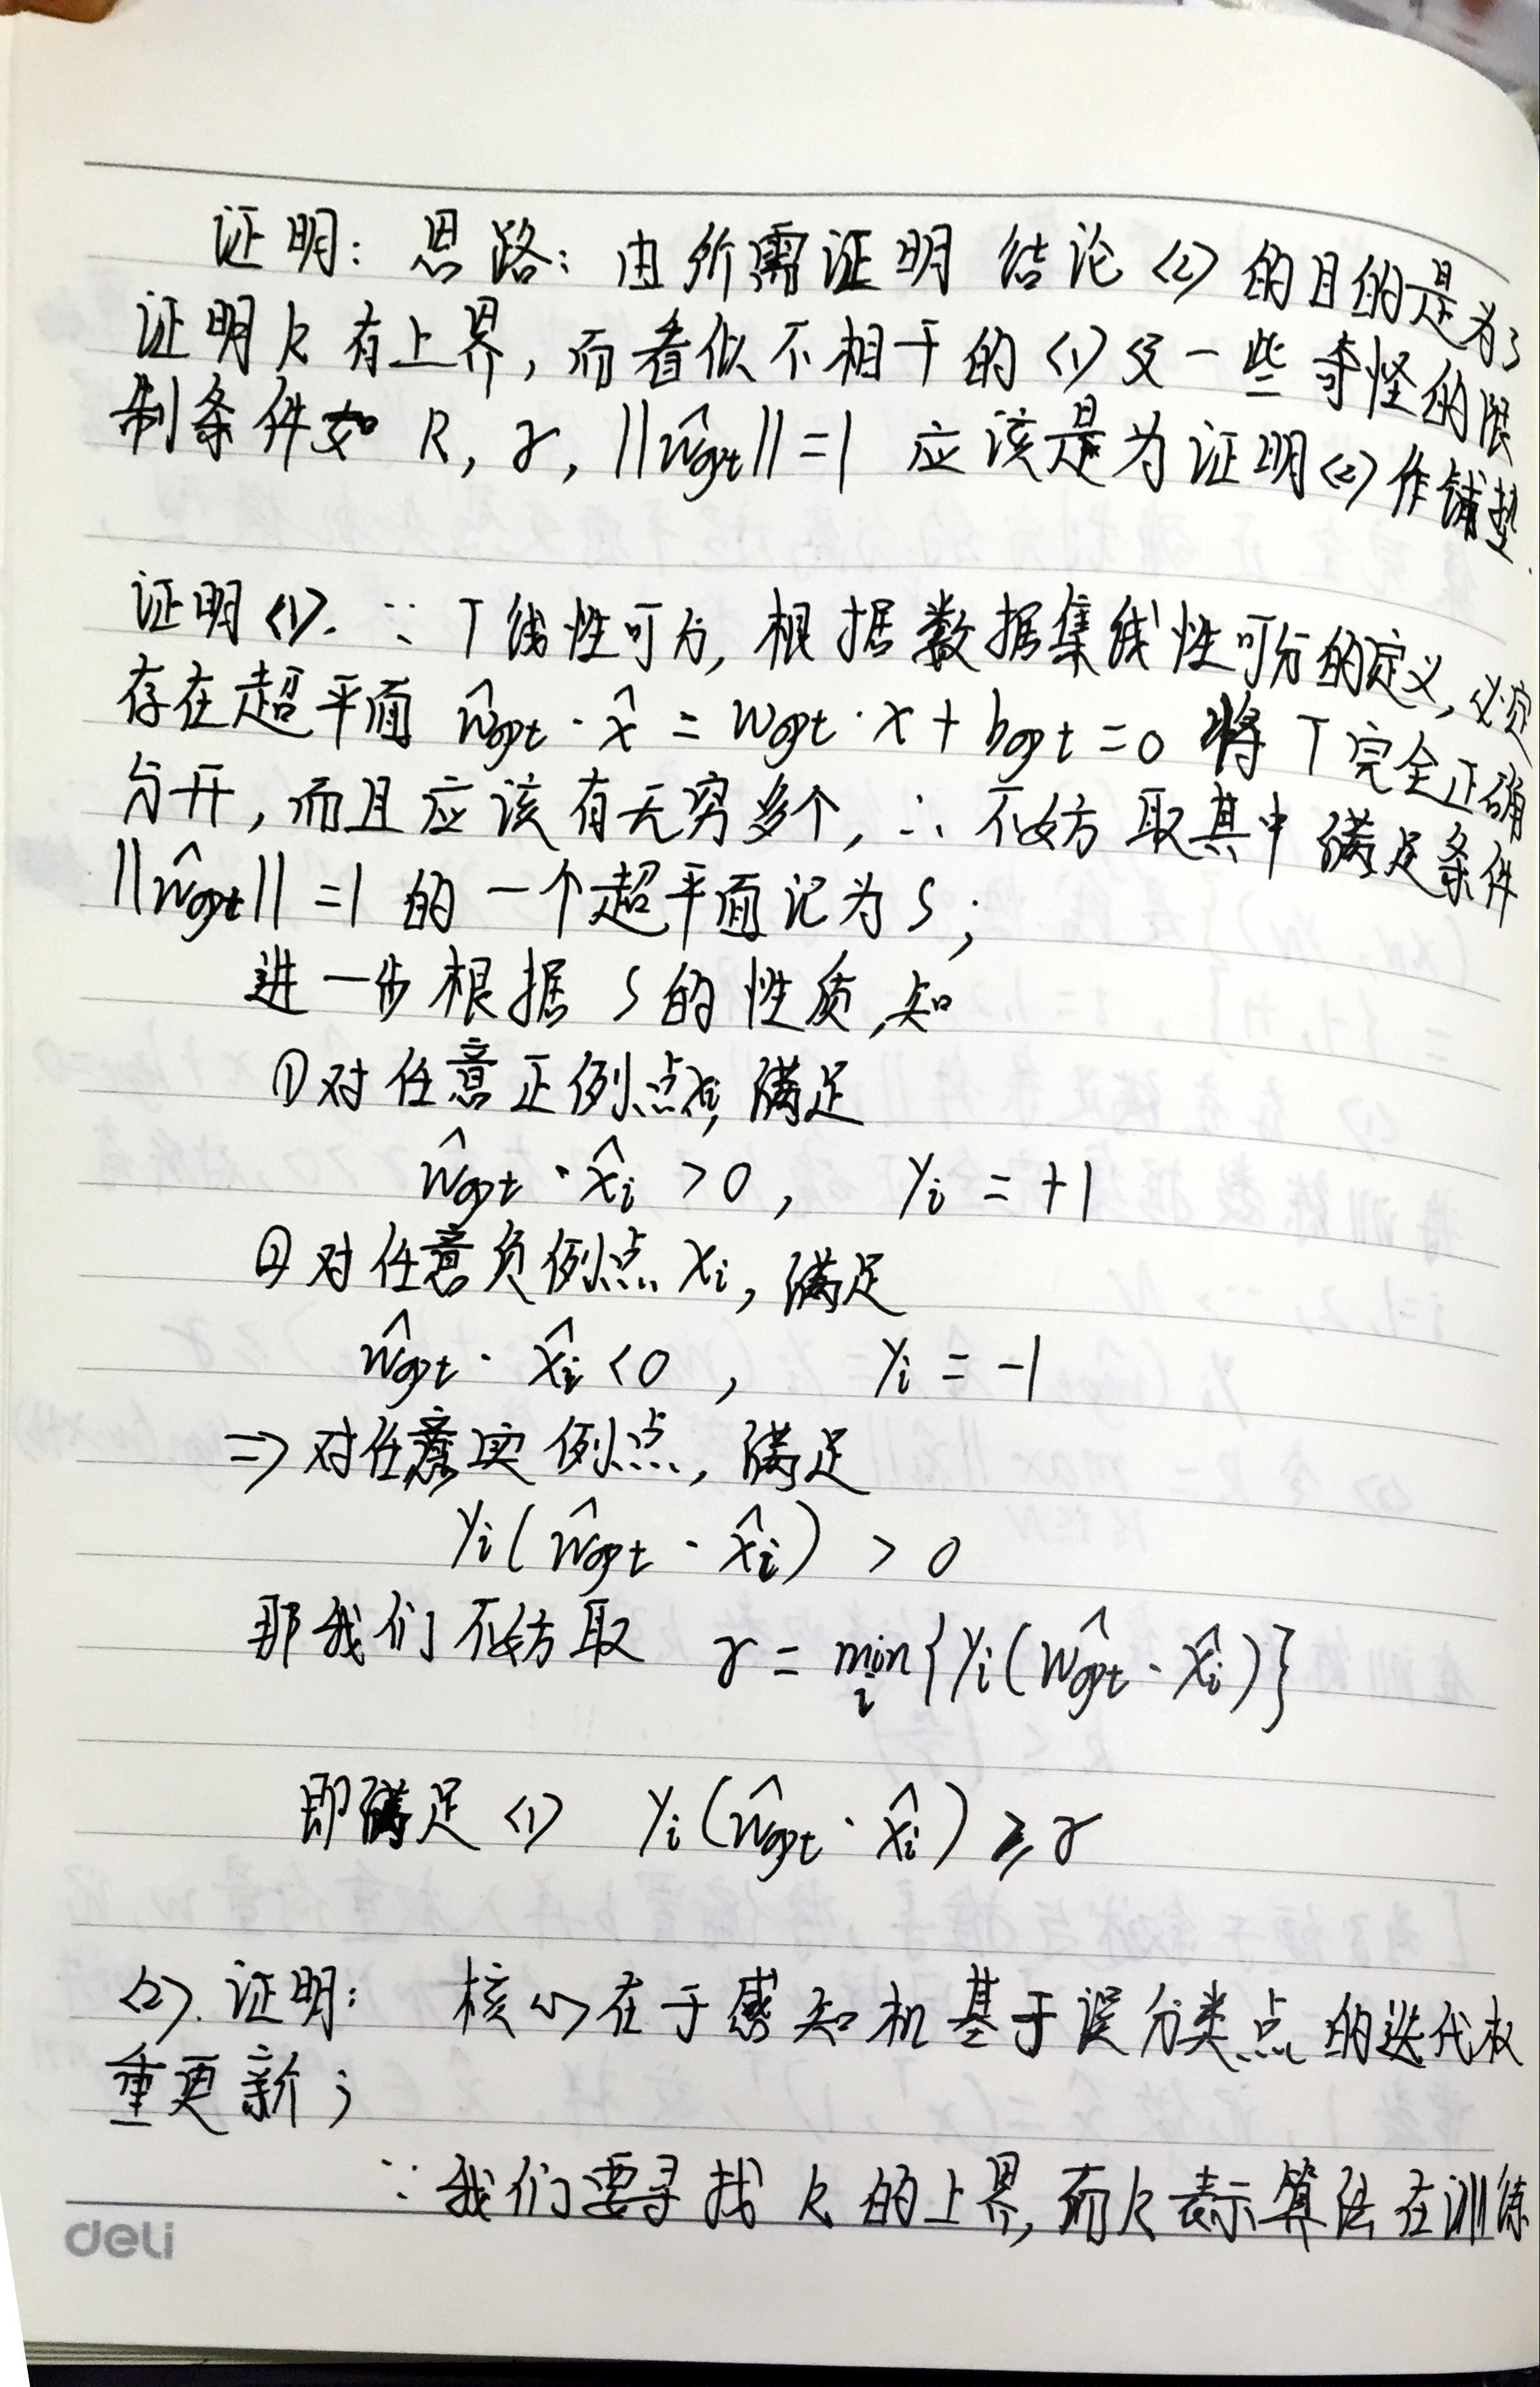 证明: 思路: 由所需证明 结论<2>的目的是为了
证明k有上界, 而看似不相干的<1>及一些奇怪的限
制条件如 R, γ, ||ŵopt||=1 应该是为证明<2>作铺垫.
证明<1>. ∵ T线性可分, 根据数据集线性可分的定义, 必定
存在超平面 ŵopt · x̂ = wopt · x + bopt = 0 将T完全正确
分开, 而且应该有无穷多个, ∴ 不妨取其中满足条件
||ŵopt|| = 1 的一个超平面记为S;
进一步根据S的性质,知
①对任意正例点xi, 满足
ŵopt · x̂i > 0, yi = +1
②对任意负例点xi, 满足
ŵopt · x̂i < 0, yi = -1
⇒ 对任意实例点, 满足
yi(ŵopt · x̂i) > 0
那我们不妨取 γ = min{yi(ŵopt · x̂i)}
i
即满足<1> yi(ŵopt · x̂i) ≥ γ
<2>. 证明: 核心在于感知机基于误分类点的迭代权
重更新;
∵ 我们要寻找k的上界, 而k表示算法在训练
deli